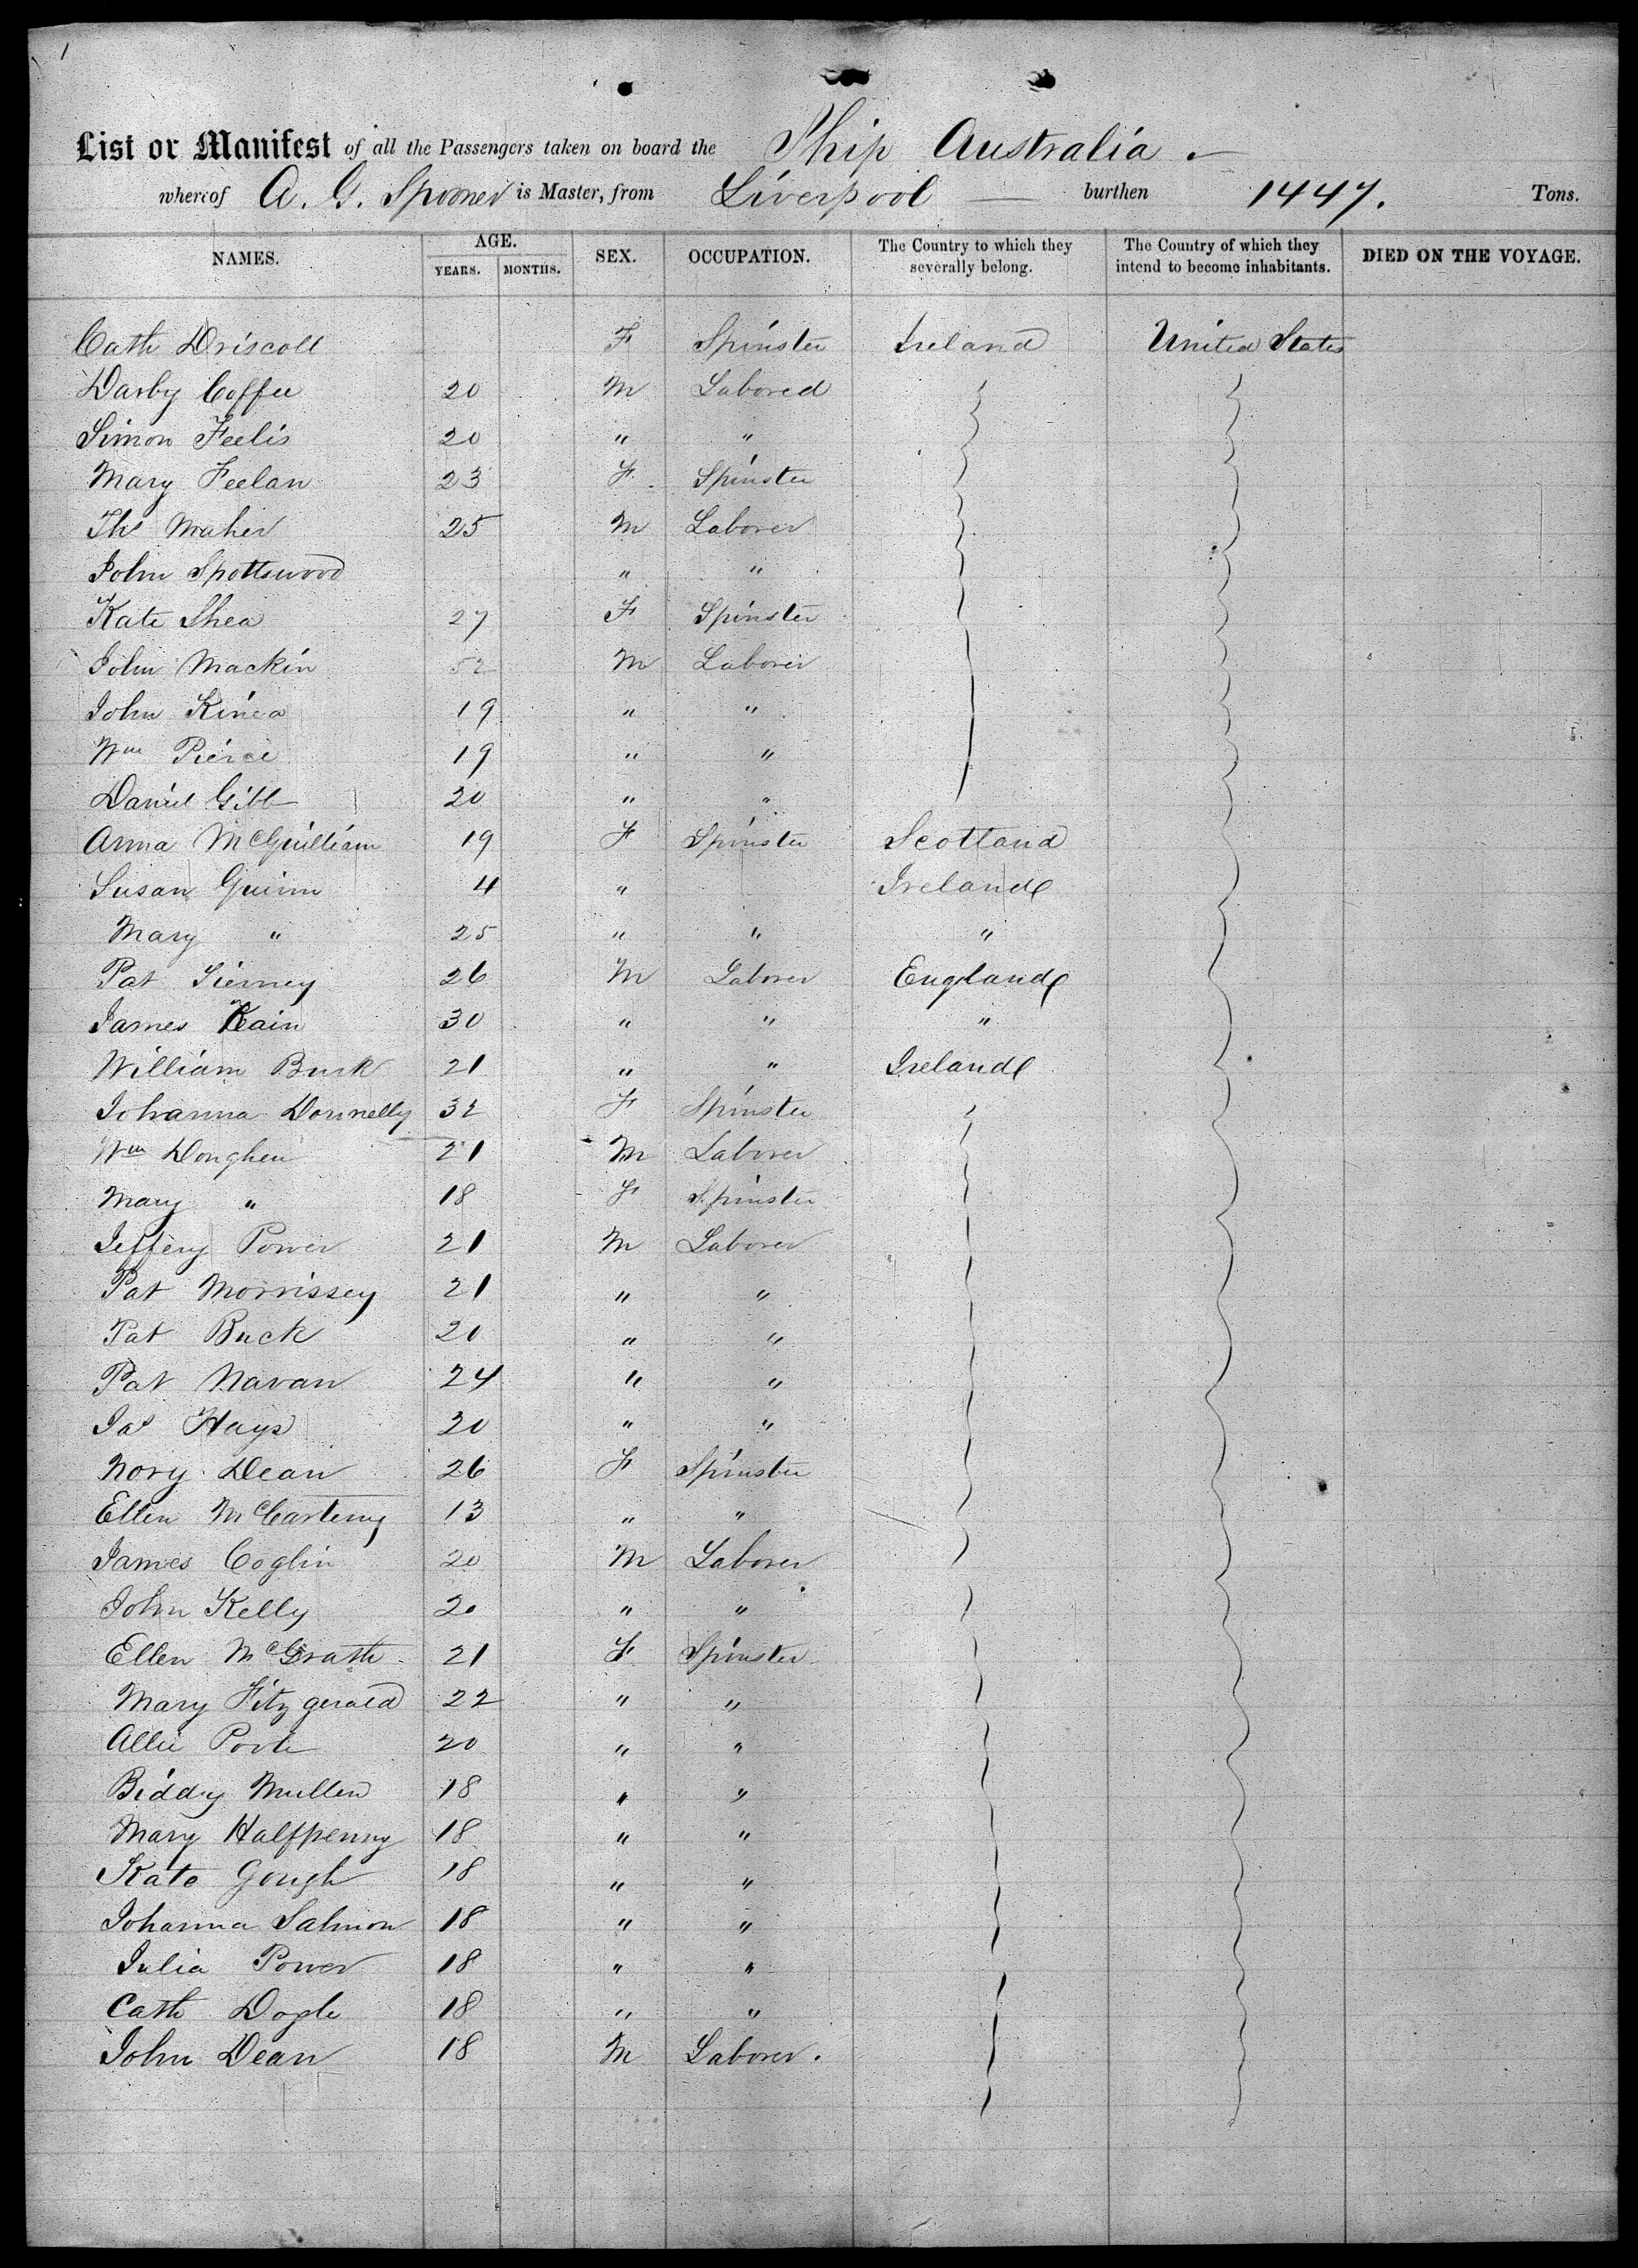 1
List or Manifest of all the Passengers taken on board the Ship Australia
whereof A. G. Spooner is Master, from Liverpool burthen 1447. Tons.
NAMES. AGE. YEARS. MONTHS. SEX. OCCUPATION. The Country to which they severally belong. The Country of which they intend to become inhabitants. DIED ON THE VOYAGE.
Cath Driscoll F Spinster Ireland United States
Darby Coffee 20 M Laborer
Simon Feelis 20 " "
Mary Feelan 23 F Spinster
Ths Maher 25 M Laborer
John Spottswood " "
Kate Shea 27 F Spinster
John Mackin 52 M Laborer
John Kinea 19 " "
Wm Pierce 19 " "
Daniel Gibb 20 " "
Anna McGuilliam 19 F Spinster Scotland
Susan Guinn 4 " Ireland
Mary " 25 " " "
Pat Tierney 26 M Laborer England
James Kain 30 " " "
William Burk 21 " " Ireland
Johanna Donnelly 32 F Spinster
Wm Donghen 21 M Laborer
Mary " 18 F Spinster
Jeffery Power 21 M Laborer
Pat Morrissey 21 " "
Pat Buck 20 " "
Pat Navan 24 " "
Jas Hays 20 " "
Nory Dean 26 F Spinster
Ellen McCarteny 13 " "
James Coglin 20 M Laborer
John Kelly 20 " "
Ellen McGrath 21 F Spinster
Mary Fitzgerald 22 " "
Allie Poole 20 " "
Biddy Mullen 18 " "
Mary Halfpenny 18 " "
Kate Gough 18 " "
Johanna Salmon 18 " "
Julia Power 18 " "
Cath Dogle 18 " "
John Dean 18 M Laborer.